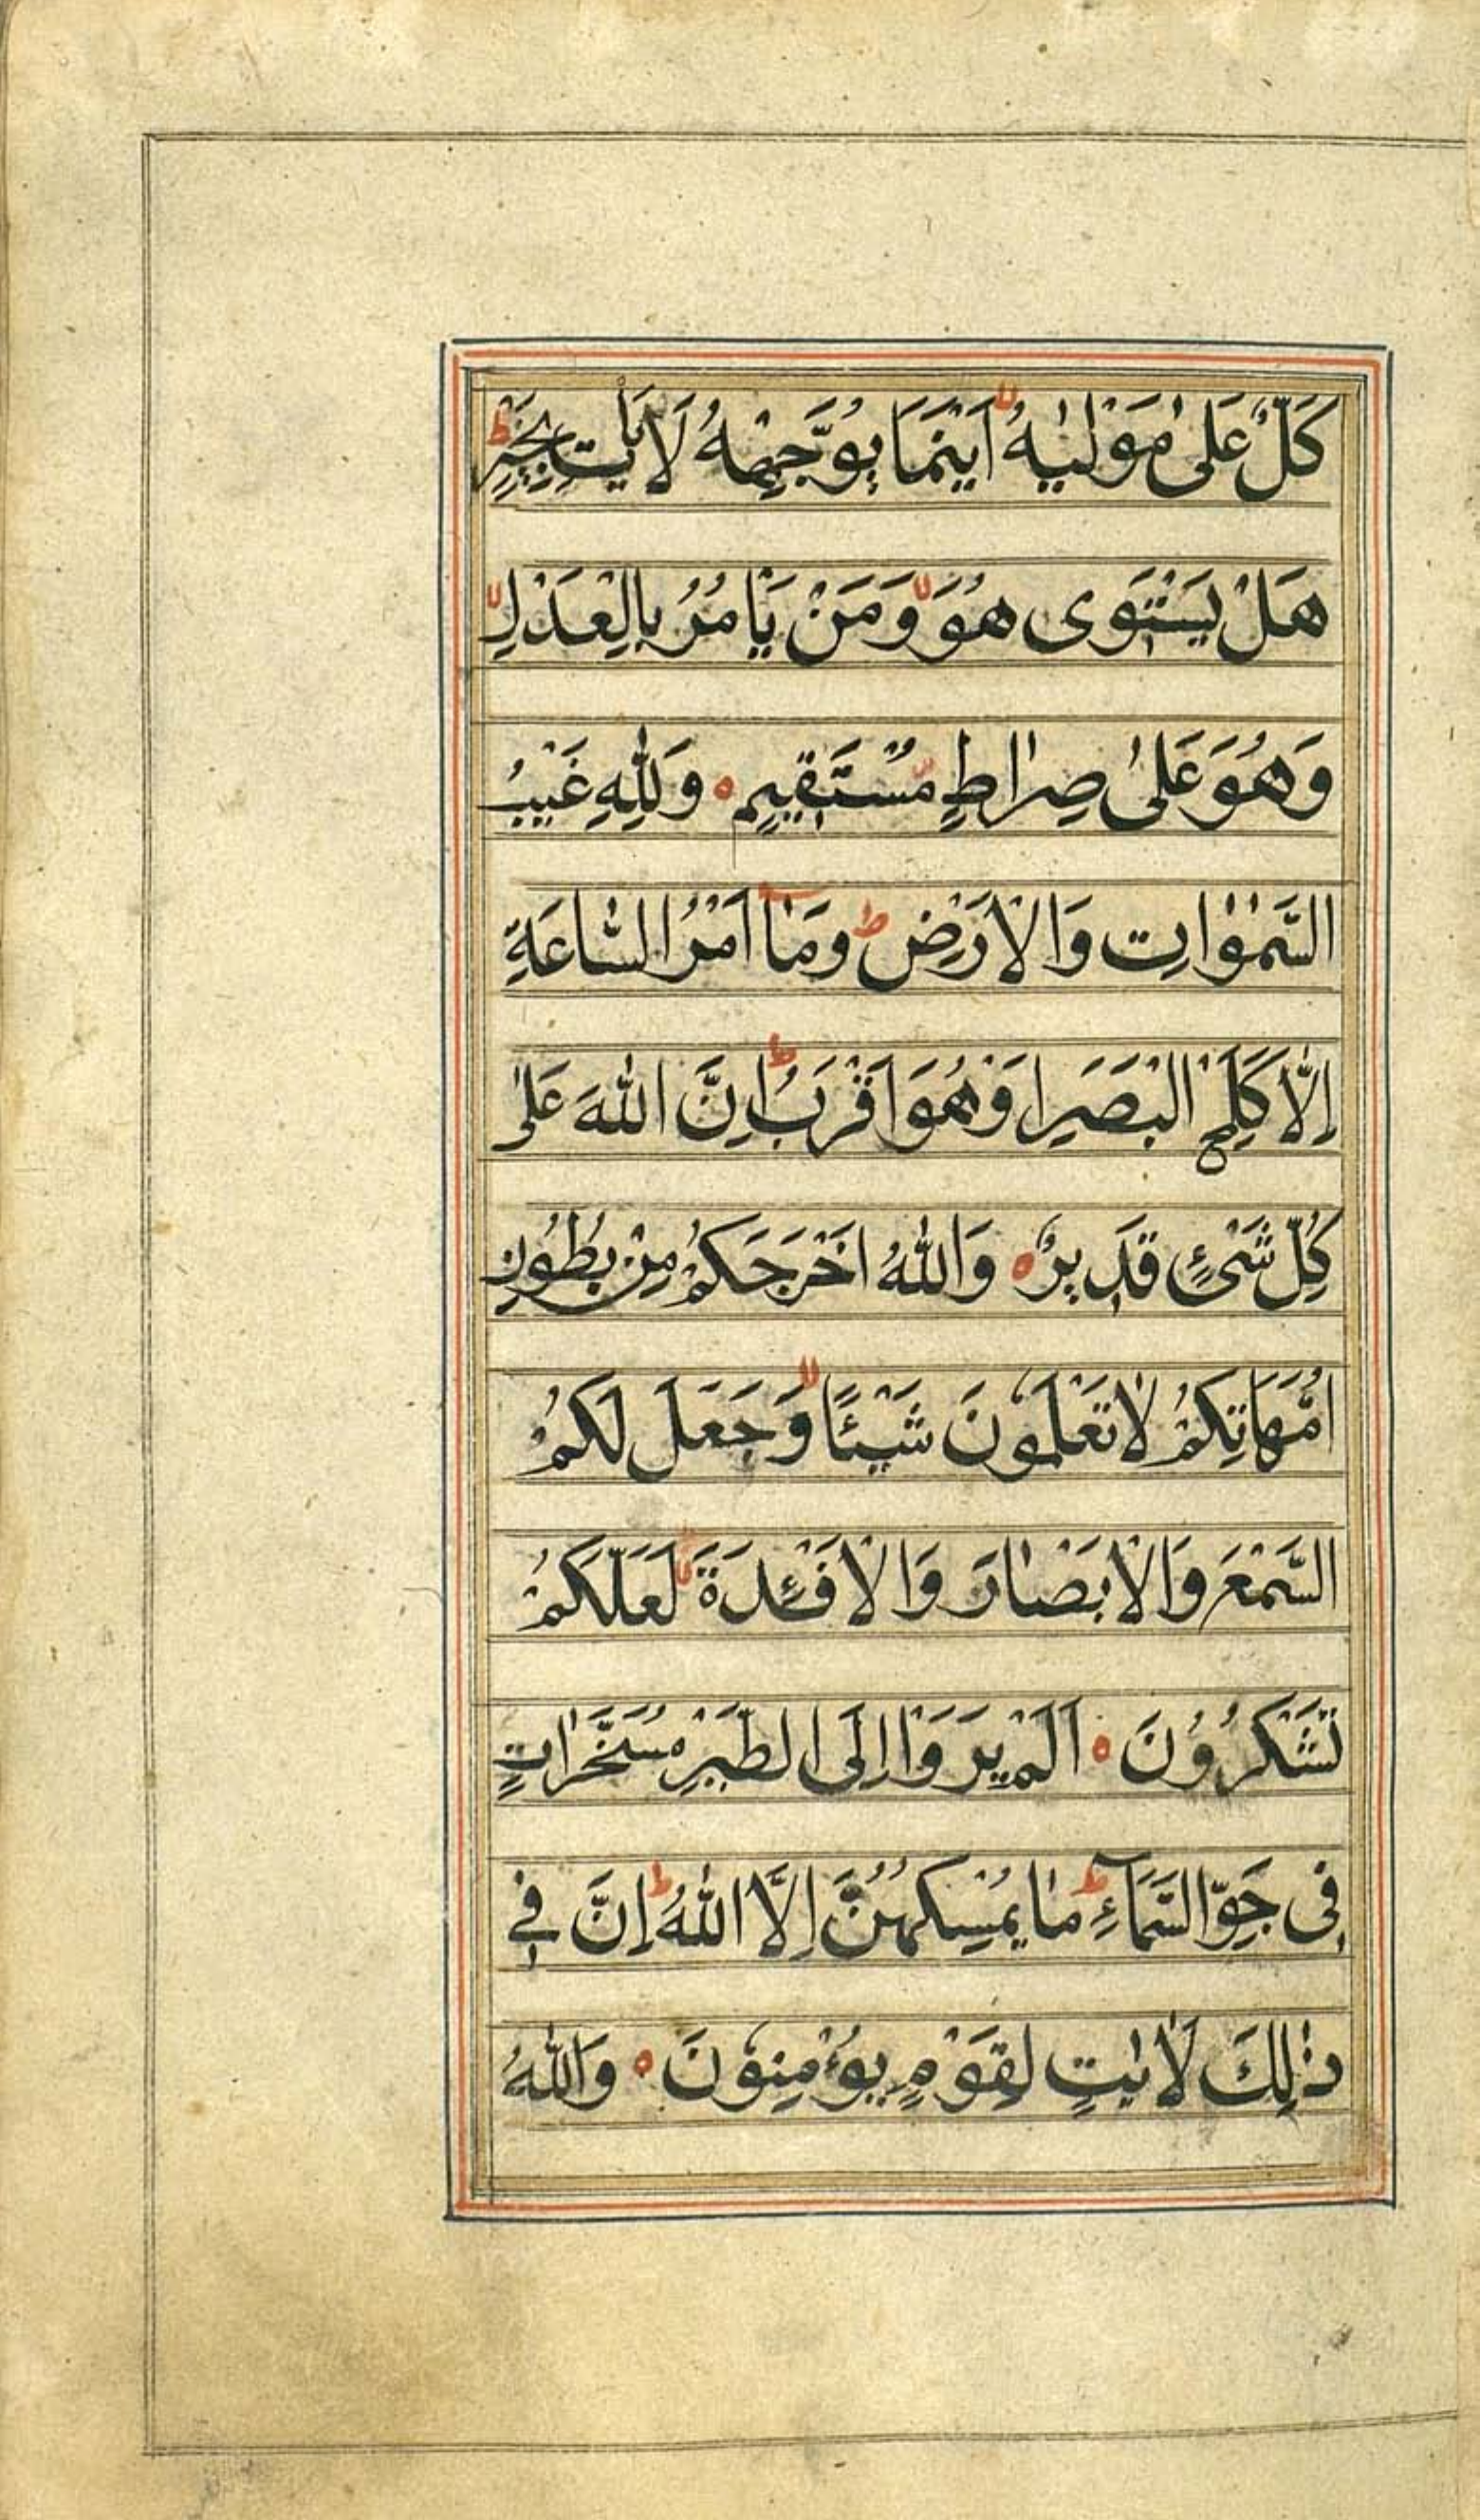 كَلٌّ عَلىٰ مَوْلٰيهُ ۙ اَيْنَمَا يُوَجِّهْهُ لَا يَأْتِ بِخَيْرٍ ط
هَلْ يَسْتَوِى هُوَ ۙ وَمَنْ يَأْمُرُ بِالْعَدْلِ ۙ
وَهُوَ عَلىٰ صِراطٍ مُسْتَقِيمٍ ه وَلِلّٰهِ غَيْبُ
السَّمٰوٰاتِ وَالْاَرْضِ ط وَمَآ اَمْرُ السَّاعَةِ
اِلَّا كَلَمْحِ الْبَصَرِ اَوْ هُوَ اَقْرَبُ ط اِنَّ اللّٰهَ عَلىٰ
كُلِّ شَىْءٍ قَدِيرٌ ه وَاللّٰهُ اَخْرَجَكُمْ مِنْ بُطُونِ
اُمَّهَاتِكُمْ لَا تَعْلَمُونَ شَيْئًا ۙ وَجَعَلَ لَكُمُ
السَّمْعَ وَالْاَبْصٰارَ وَالْاَفْئِدَةَ ۙ لَعَلَّكُمْ
تَشْكُرُونَ ه اَلَمْ يَرَوْا اِلَى الطَّيْرِ مُسَخَّرٰاتٍ
فِى جَوِّ السَّمَآءِ ط مٰا يُمْسِكُهُنَّ اِلَّا اللّٰهُ ط اِنَّ فِى
ذٰلِكَ لَاٰيٰتٍ لِقَوْمٍ يُؤْمِنُونَ ه وَاللّٰهُ